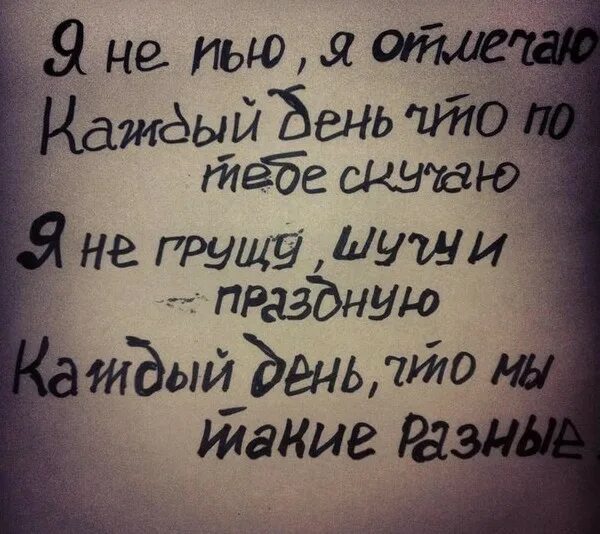 Я не пью, я отмечаю
Каждый день что по
тебе скучаю
Я не грущу, шучу и
праздную
Каждый день, что мы
такие разные.